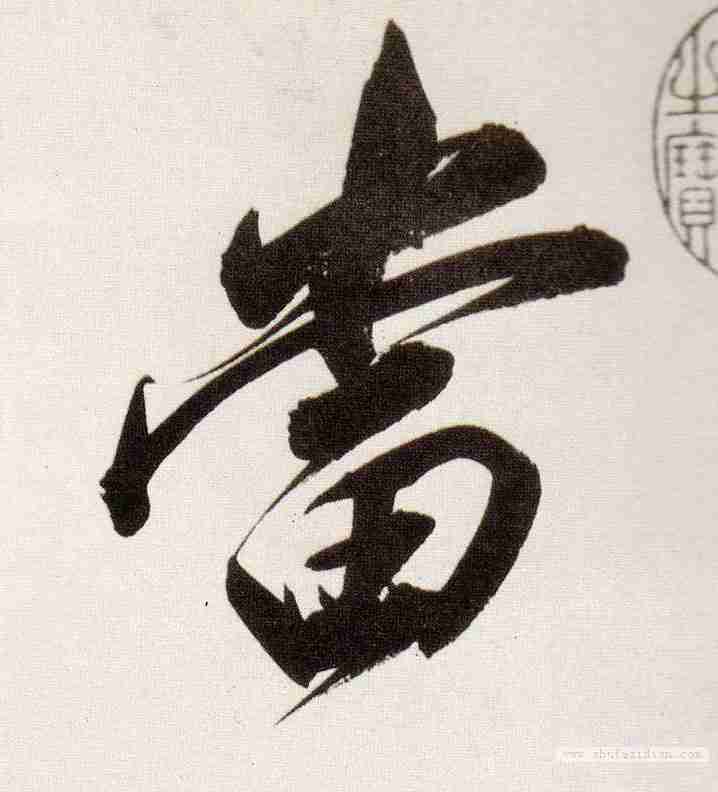 當
之寶
www.shufazidian.com